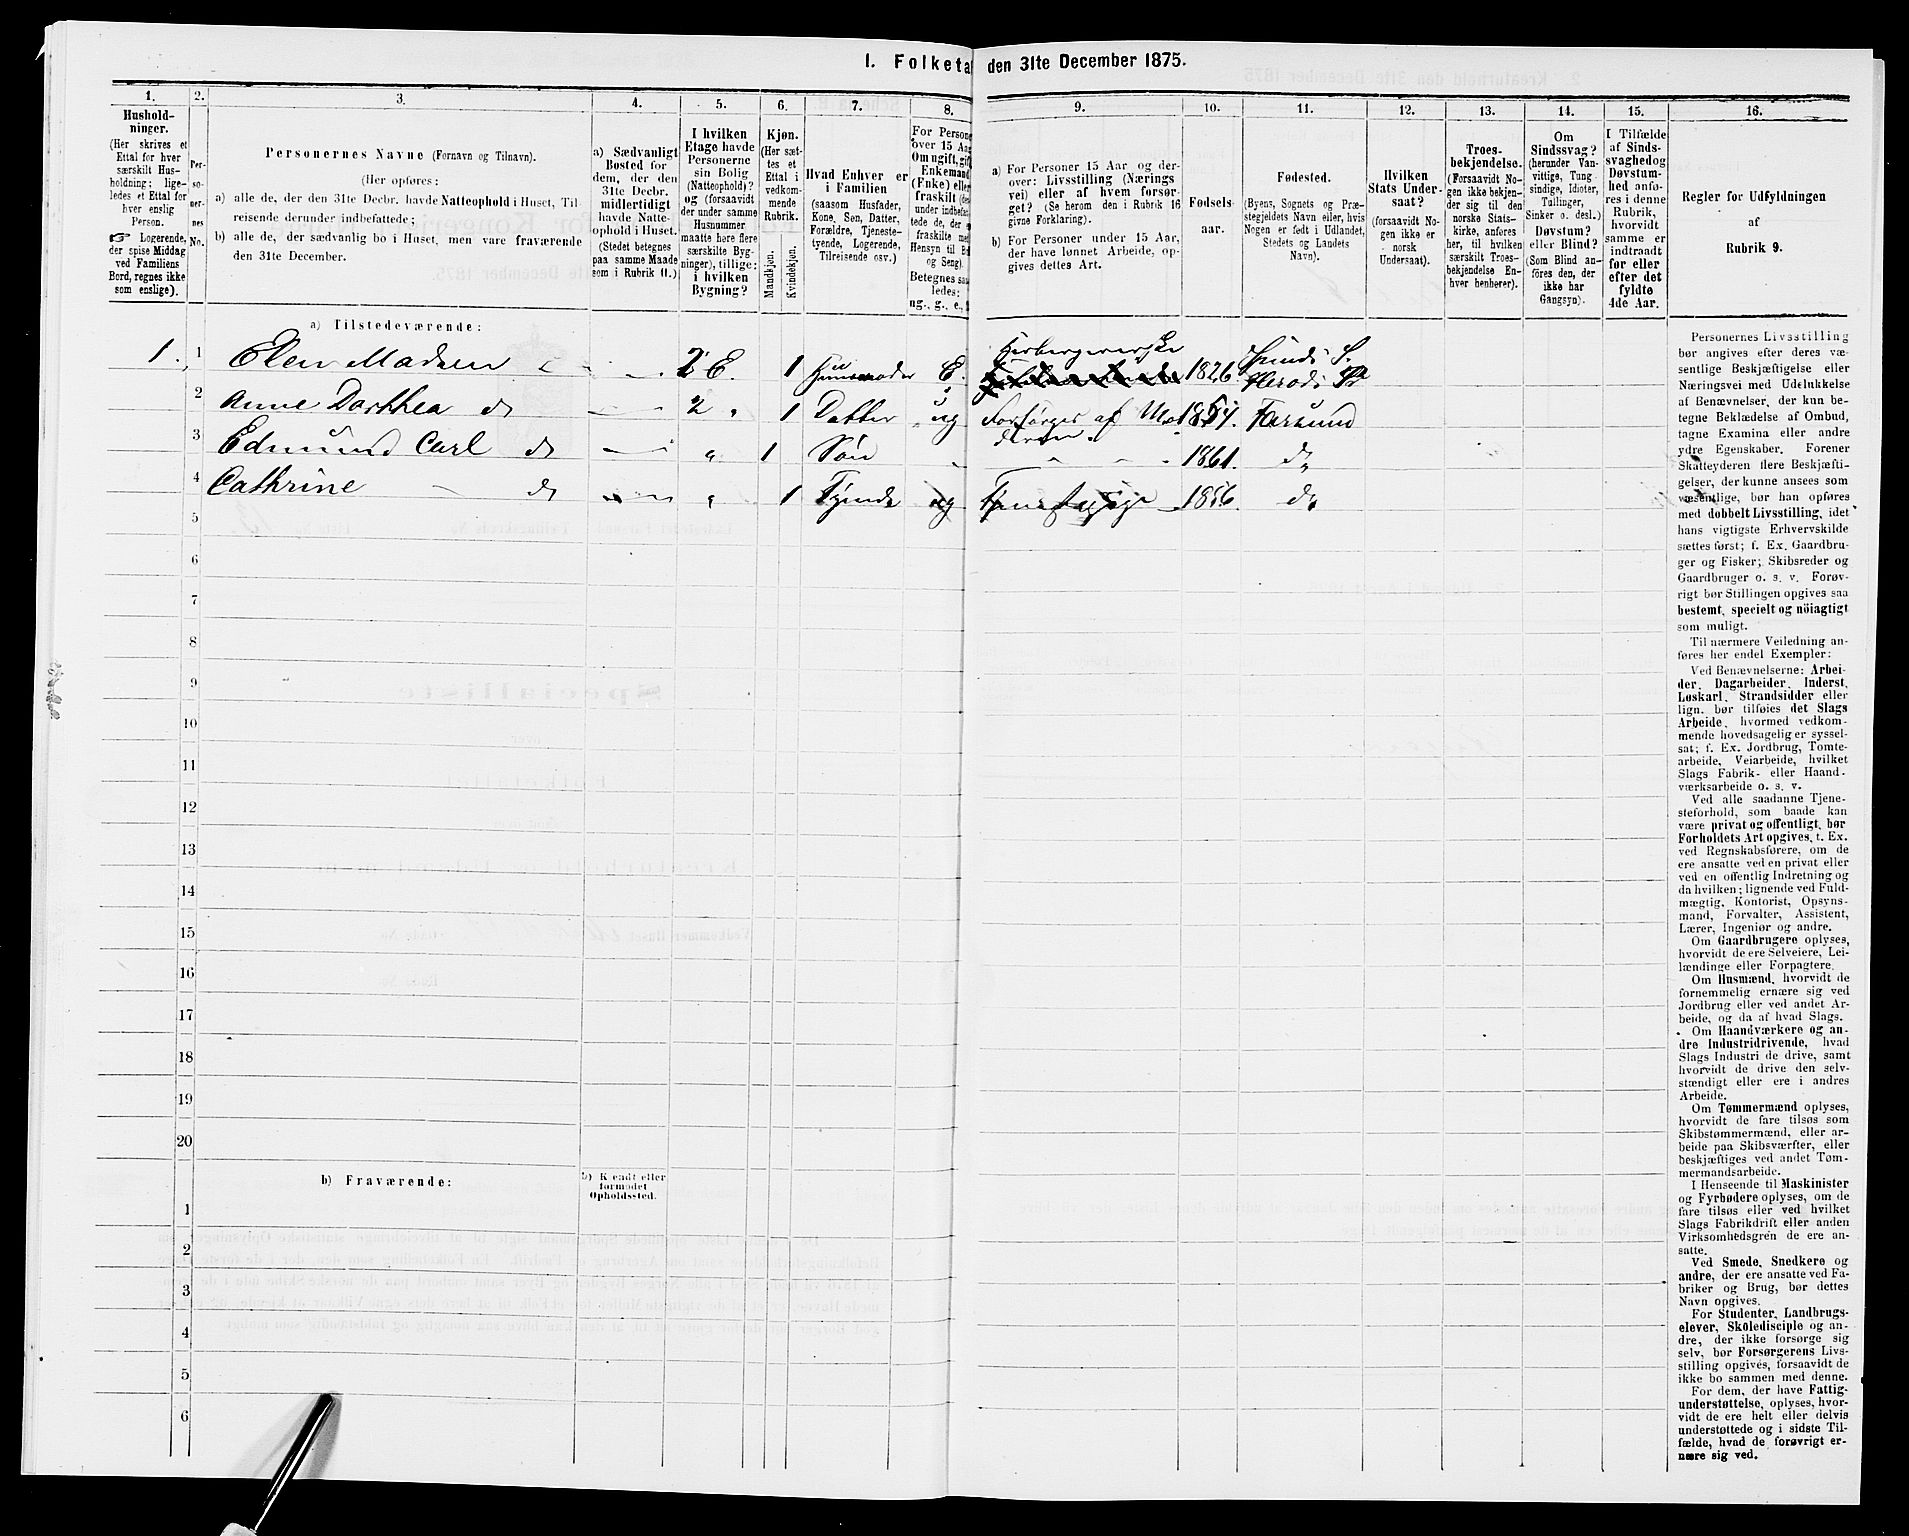 1. Folketal den 31te December 1875.
1. 2. 3. 4. 5. 6. 7. 8. 9. 10. 11. 12. 13. 14. 15. 16.
Hushold-
ninger.
(Her skrives et
Ettal for hver
særskilt Hus-
holdning; lige-
ledes et Ettal for
hver enslig
Person.
☞ Logerende,
der spise Middag
ved Familiens
Bord, regnes ikke
som enslige).
Per-
so-
ner-
nes
No.
Personernes Navne (Fornavn og Tilnavn).
(Her opføres:
a) alle de, der den 31te Decbr. havde Natteophold i Huset, Til-
reisende derunder indbefattede;
b) alle de, der sædvanlig bo i Huset, men vare fraværende
den 31te December.
a) Sædvanligt
Bosted for
dem, der den
31te Decbr.
midlertidigt
havde Natte-
ophold i Huset.
(Stedet betegnes
paa samme Maade
som i Rubrik 11.)
I hvilken
Etage havde
Personerne
sin Bolig
(Natteophold)?
og (forsaavidt
der under samme
Husnummer
maatte høre flere
særskilte Byg-
ninger), tillige:
i hvilken
Bygning?
Kjøn.
(Her sæt-
tes et
Ettal i
vedkom-
mende
Rubrik.
Mandkjøn.
Kvindekjøn.
Hvad Enhver er
i Familien
(saasom Husfader,
Kone, Søn, Datter,
Forældre, Tjeneste-
tyende, Logerende,
Tilreisende osv.)
For Persone
over 15 Aa
Om ugift, gif
Enkemand
(Enke) elle
fraskilt
under indbefat
tede de, der
fraskilte me
Hensyn til B
og Seng).
Betegnes saa
ledes:
ug., g., e.,
a) For Personer 15 Aar og der-
over: Livsstilling (Nærings
vei) eller af hvem forsør-
get? (Se herom den i Rubrik 16
givne Forklaring).
b) For Personer under 15 Aar,
der have lønnet Arbeide, op-
gives dettes Art.
Fødsels-
aar.
Fødested.
(Byens, Sognets og Præ-
stegjeldets Navn eller, hvis
Nogen er født i Udlandet,
Stedets og Landets
Navn).
Hvilken
Stats Under-
saat?
(forsaavidt No-
gen ikke er
norsk
Undersaat).
Troes-
bekjendelse.
(Forsaavidt No-
gen ikke bekjen-
der sig til den
norske Stats-
kirke, anføres
her, til hvilken
særskilt Troes-
bekjendelse En-
hver henhører).
Om
Sindssvag?
(herunder Van-
vittige, Tung
sindige, Idioter,
Tullinger,
Sinker o. desl.)
Døvstum?
eller Blind?
(Som Blind an-
føres den, der
ikke har
Gangsyn).
I Tilfælde
af Sinds-
svaghedog
Døvstum-
hed anfø-
res i denne
Rubrik,
hvorvidt
samme er
indtraadt
før eller
efter det
fyldte
4de Aar.
Regler for Udfyldningen
af
Rubrik 9.
a) Tilstedeværende:
1. 1 Elen Madsen 2 E. 1 Huusmoder E. Herbergererske 1826 Spinds S. Herads Pr
2 Anne Dorthea do 2 " 1 Datter ug Forsørges af Mo- 1854. Farsund
deren
3 Edmund Carl do " 1 Søn " 1861. do
4 Cathrine do " 1 Tyende ug Tjenestepige 1856 do
5
6
7
8
9
10
11
12
13
14
15
16
17
18
19
20
b) Fraværende:
b) Kjendt eller
formodet
Opholdssted.
1
2
3
4
5
6
Personernes Livsstilling
bør angives efter deres væ-
sentlige Beskjæftigelse eller
Næringsvei med Udelukkelse
af Benævnelser, der kun be-
tegne Beklædelse af Ombud,
tagne Examina eller andre
ydre Egenskaber. Forener
Skatteyderen flere Beskjæfti-
gelser, der kunne ansees som
væsentlige, bør han opføres
med dobbelt Livsstilling, idet
hans vigtigste Erhvervskilde
sættes først; f. Ex. Gaardbru-
ger og Fisker; Skibsreder og
Gaardbruger o. s. v. Forøv-
rigt bør Stillingen opgives saa
bestemt, specielt og nöiagtigt
som muligt.
Til nærmere Veiledning an-
føres her endel Exempler:
Ved Benævnelserne: Arbei-
der, Dagarbeider, Inderst,
Løskarl, Strandsidder eller
lign. bør tilføies det Slags
Arbeide, hvormed vedkom-
mende hovedsagelig er syssel-
sat; f. Ex. Jordbrug, Tomte-
arbeide, Veiarbeide, hvilket
Slags Fabrik- eller Haand-
værksarbeide o. s. v.
Ved alle saadanne Tjene-
steforhold, som baade kan
være privat og offentligt, bør
Forholdets Art opgives, t. Ex.
ved Regnskabsførere, om de
ere ansatte ved en privat eller
ved en offentlig Indretning og
da hvilken; lignende ved Fuld-
mægtig, Kontorist, Opsyns-
mand, Forvalter, Assistent,
Lærer, Ingeniør og andre.
Om Gaardbrugere oplyses,
hvorvidt de ere Selveiere, Lei-
lændinge eller Forpagtere.
Om Husmænd, hvorvidt de
fornemmelig ernære sig ved
Jordbrug eller ved andet Ar-
beide, og da af hvad Slags.
Om Haandværkere og an-
dre Industridrivende, hvad
Slags Industri de drive, samt
hvorvidt de drive den selv-
stændigt eller ere i andres
Arbeide.
Om Tømmermænd oplyses,
hvorvidt de fare tilsøs som
Skibstømmermænd, eller ar-
beide paa Skibsværfter, eller
beskjæftiges ved andet Tøm-
mermandsarbeide.
I Henseende til Maskinister
og Fyrbødere oplyses, om de
fare tilsøs eller ved hvilket
Slags Fabrikdrift eller anden
Virksomhedsgren de ere an-
satte.
Ved Smede, Snedkere og
andre, der ere ansatte ved Fa-
briker og Brug, bør dettes
Navn opgives.
For Studenter, Landbrugs-
elever, Skoledisciple og an-
dre, der ikke forsørge sig
selv, bør Forsørgerens Livs-
stilling opgives, forsaavidt de
ikke bo sammen med denne.
For dem, der have Fattig-
understøttelse, oplyses, hvor-
vidt de ere helt eller delvis
understøttede og i sidste Til-
fælde, hvad de forøvrigt er-
nære sig ved.